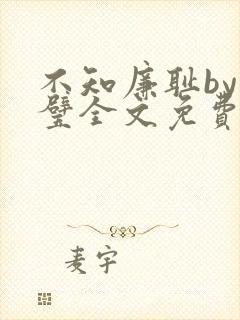 不知廉耻by
璧全文免費
麦宇